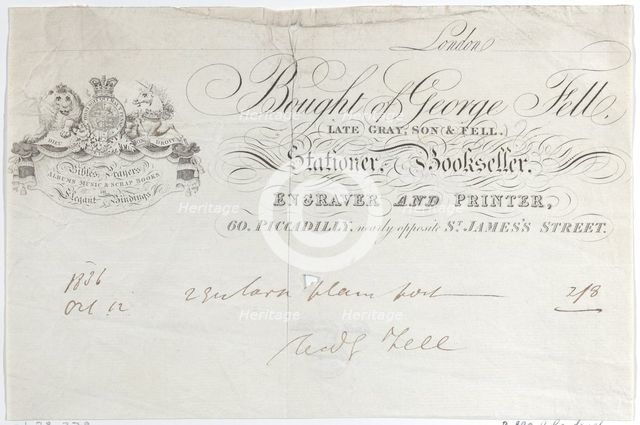 London
Bought of George Fell.
(LATE GRAY, SON & FELL.)
Stationer, Bookseller,
ENGRAVER AND PRINTER,
60, PICCADILLY, nearly opposite ST. JAMES'S STREET.
DIEU DROIT
Bibles, Prayers
ALBUMS MUSIC & SCRAP BOOKS
in
Elegant Bindings
1836
Oct 12 plain 2/8
Fell
Heritage Heritage Heritage
Heritage Heritage Heritage
Heritage Heritage Heritage